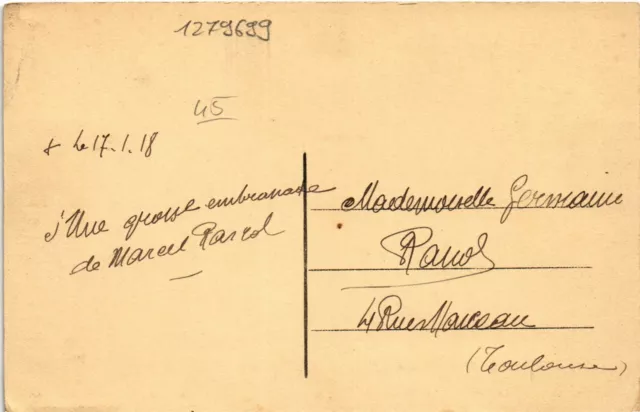 1279699
45
+ le 17.1.18
Une grosse embrassade
de Marcel
Mademoiselle Germaine
4 Rue Marceau
(Toulouse)